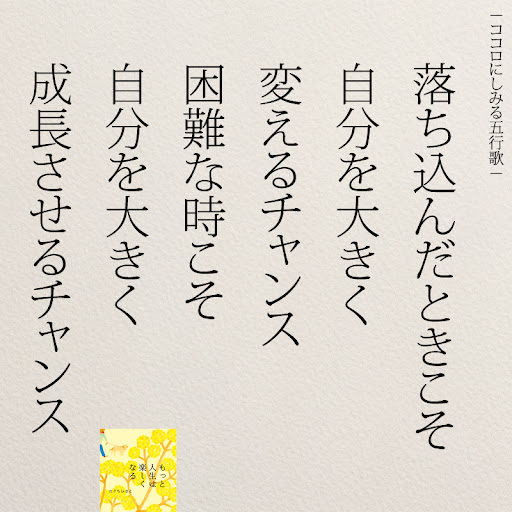 －ココロにしみる五行歌－
落ち込んだときこそ
自分を大きく
変えるチャンス
困難な時こそ
自分を大きく
成長させるチャンス
もっと
人生は
楽しく
なる